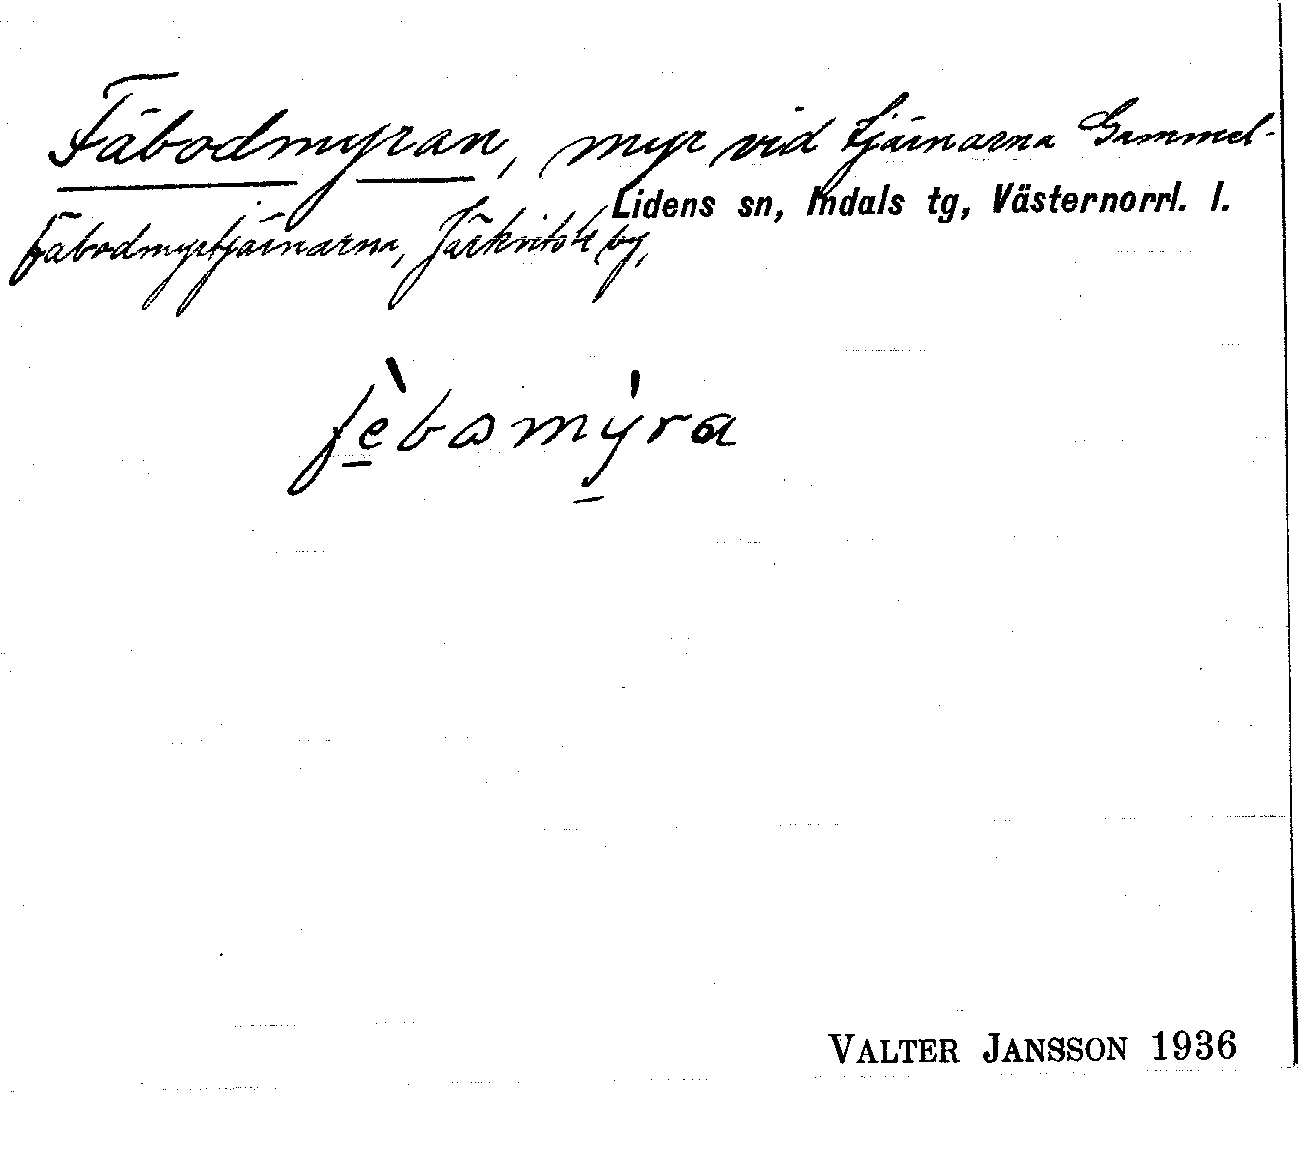 Fäbodmyran, myr vid tjärnarna Gammel-
Lidens sn, Indals tg, Västernorrl. l.
Fäbodmyrtjärnarna, Järkvitsle by,
fèbomýra
VALTER JANSSON 1936